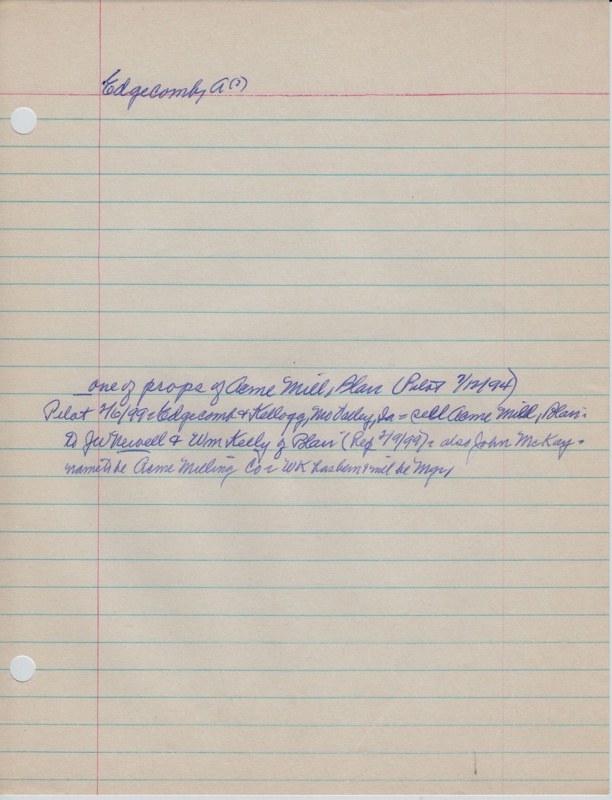 Edgecomb, A (?)
— one of props of Acme Mill, Blair (Pilot 7/12/94)
Pilot 2/6/99 = Edgecomb & Kellogg, Mo Valley, Ia = sell Acme Mill, Blair =
to J W Newell & Wm Kelly of Blair (Rep 2/9/99) = also John McKay =
name to be Acme Milling Co = WK has been & will be Mgr,